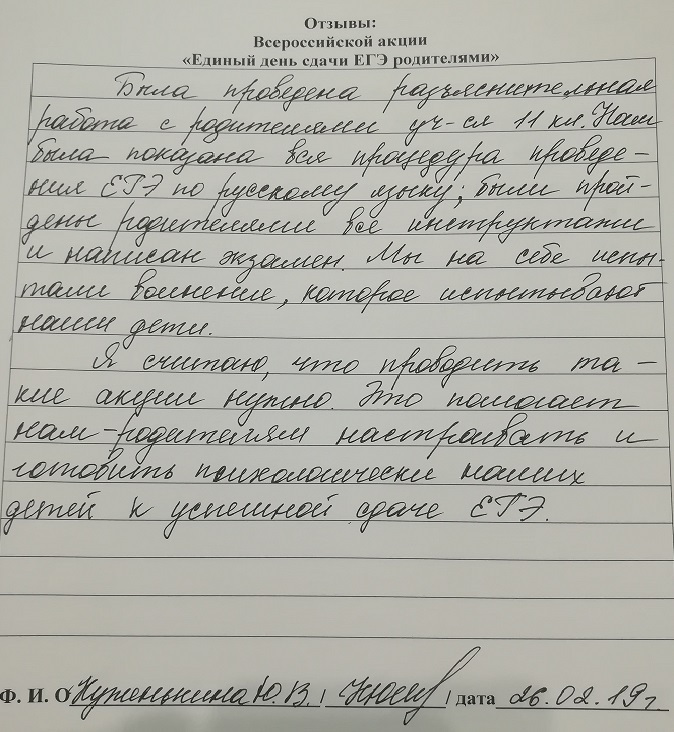 Отзывы:
Всероссийской акции
«Единый день сдачи ЕГЭ родителями»
Была проведена разъяснительная
работа с родителями уч-ся 11 кл. Нам
была показана вся процедура проведе-
ния ЕГЭ по русскому языку; были прой-
дены родителями все инструктажи
и написан экзамен. Мы на себе испы-
тали волнение, которое испытывают
наши дети.
Я считаю, что проводить та-
кие акции нужно. Это помогает
нам-родителям настраивать и
готовить психологически наших
детей к успешной сдаче ЕГЭ.
Ф. И. О Ю. В. / / дата 26.02.19г.